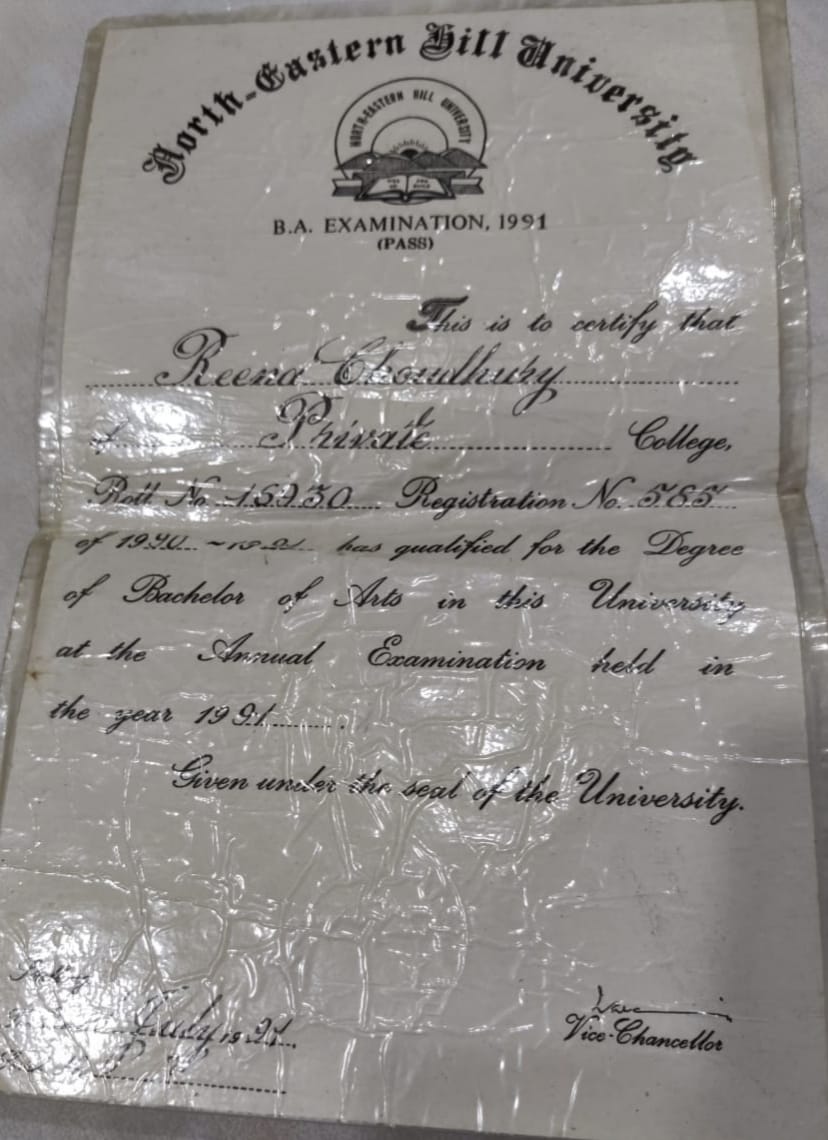 North-Eastern Hill University
NORTH-EASTERN HILL UNIVERSITY
B.A. EXAMINATION, 1991
(PASS)
This is to certify that
Reena Choudhury
of Private College,
Roll No 15930 Registration No. 585
of 1990 has qualified for the Degree
of Bachelor of Arts in this University
at the Annual Examination held in
the year 1991
Given under the seal of the University.
July 1991
Vice-Chancellor